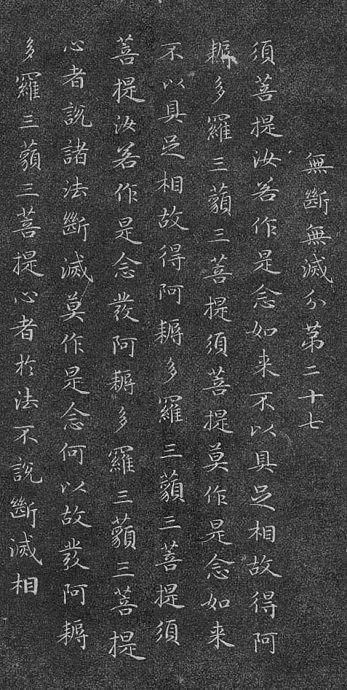 無斷無滅分第二十七
須菩提汝若作是念如来不以具足相故得阿
耨多羅三藐三菩提須菩提莫作是念如来
不以具足相故得阿耨多羅三藐三菩提須
菩提汝若作是念發阿耨多羅三藐三菩提
心者說諸法斷滅莫作是念何以故發阿耨
多羅三藐三菩提心者於法不說斷滅相